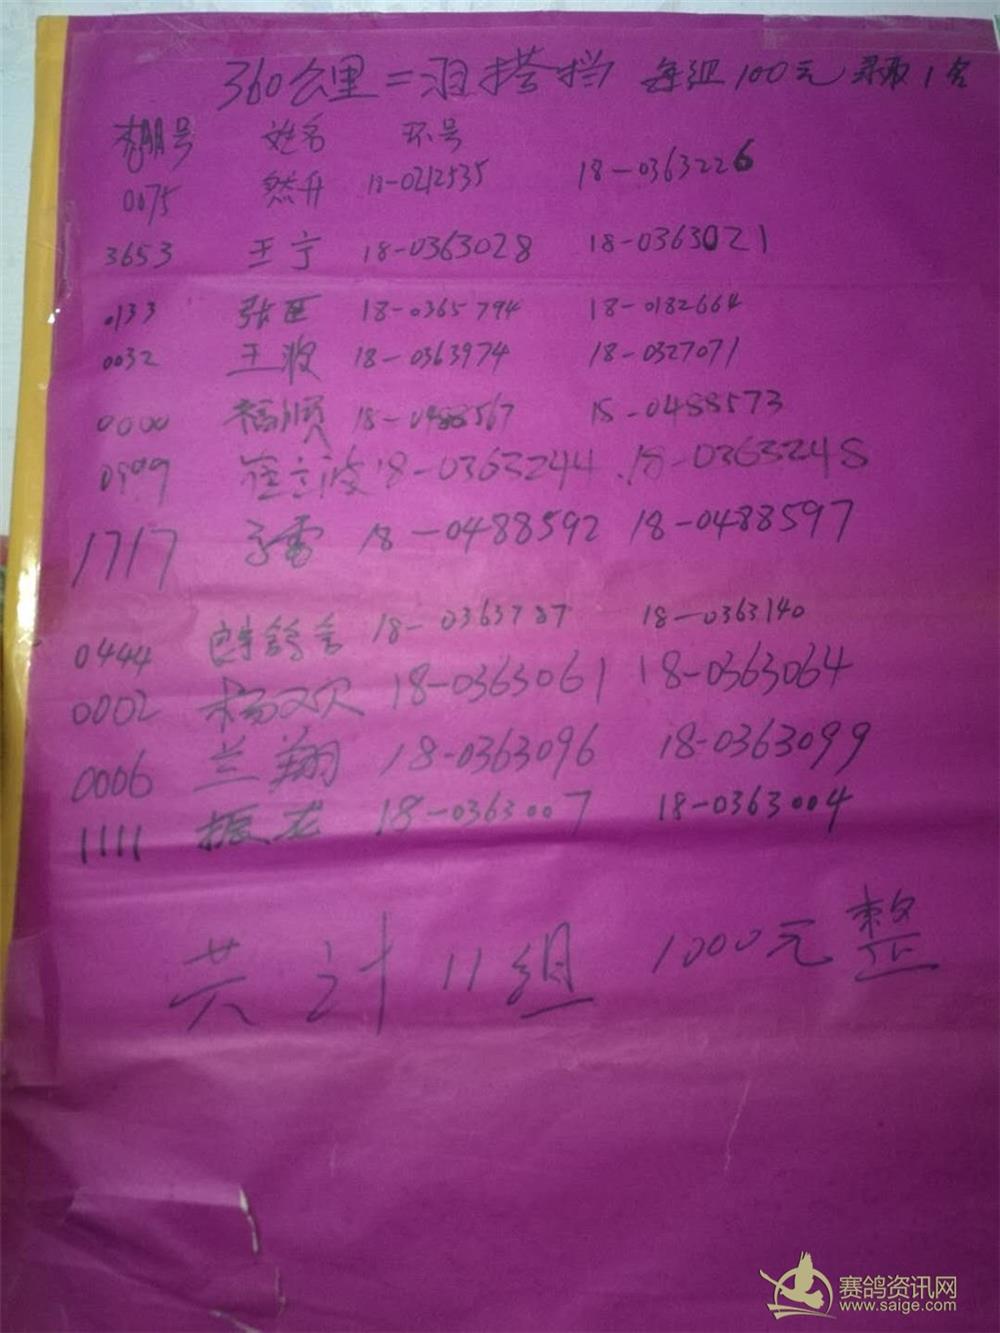 360公里二羽搭挡 每组100元 录取1名
棚号 姓名 环号
0075 然升 18-0212535 18-0363226
3653 王宁 18-0363028 18-0363021
0133 张臣 18-0365794 18-0182664
0032 王波 18-0363974 18-0327071
0000 福顺 18-0488567 18-0488573
0999 崔立波 18-0363244 18-0363248
1717 子雷 18-0488592 18-0488597
0444 鸽舍 18-0363787 18-0363140
0002 杨双 18-0363061 18-0363064
0006 兰翔 18-0363096 18-0363099
1111 振龙 18-0363007 18-0363004
共计11组 1000元整
赛鸽资讯网
www.saige.com